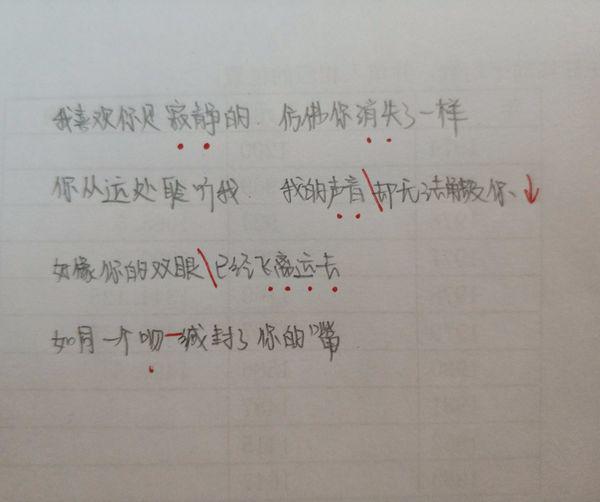 我喜欢你是寂静的. 仿佛你消失了一样
你从远处聆听我. 我的声音\却无法触及你、↓
好像你的双眼\已经飞离远去
如同一个吻一缄封了你的嘴